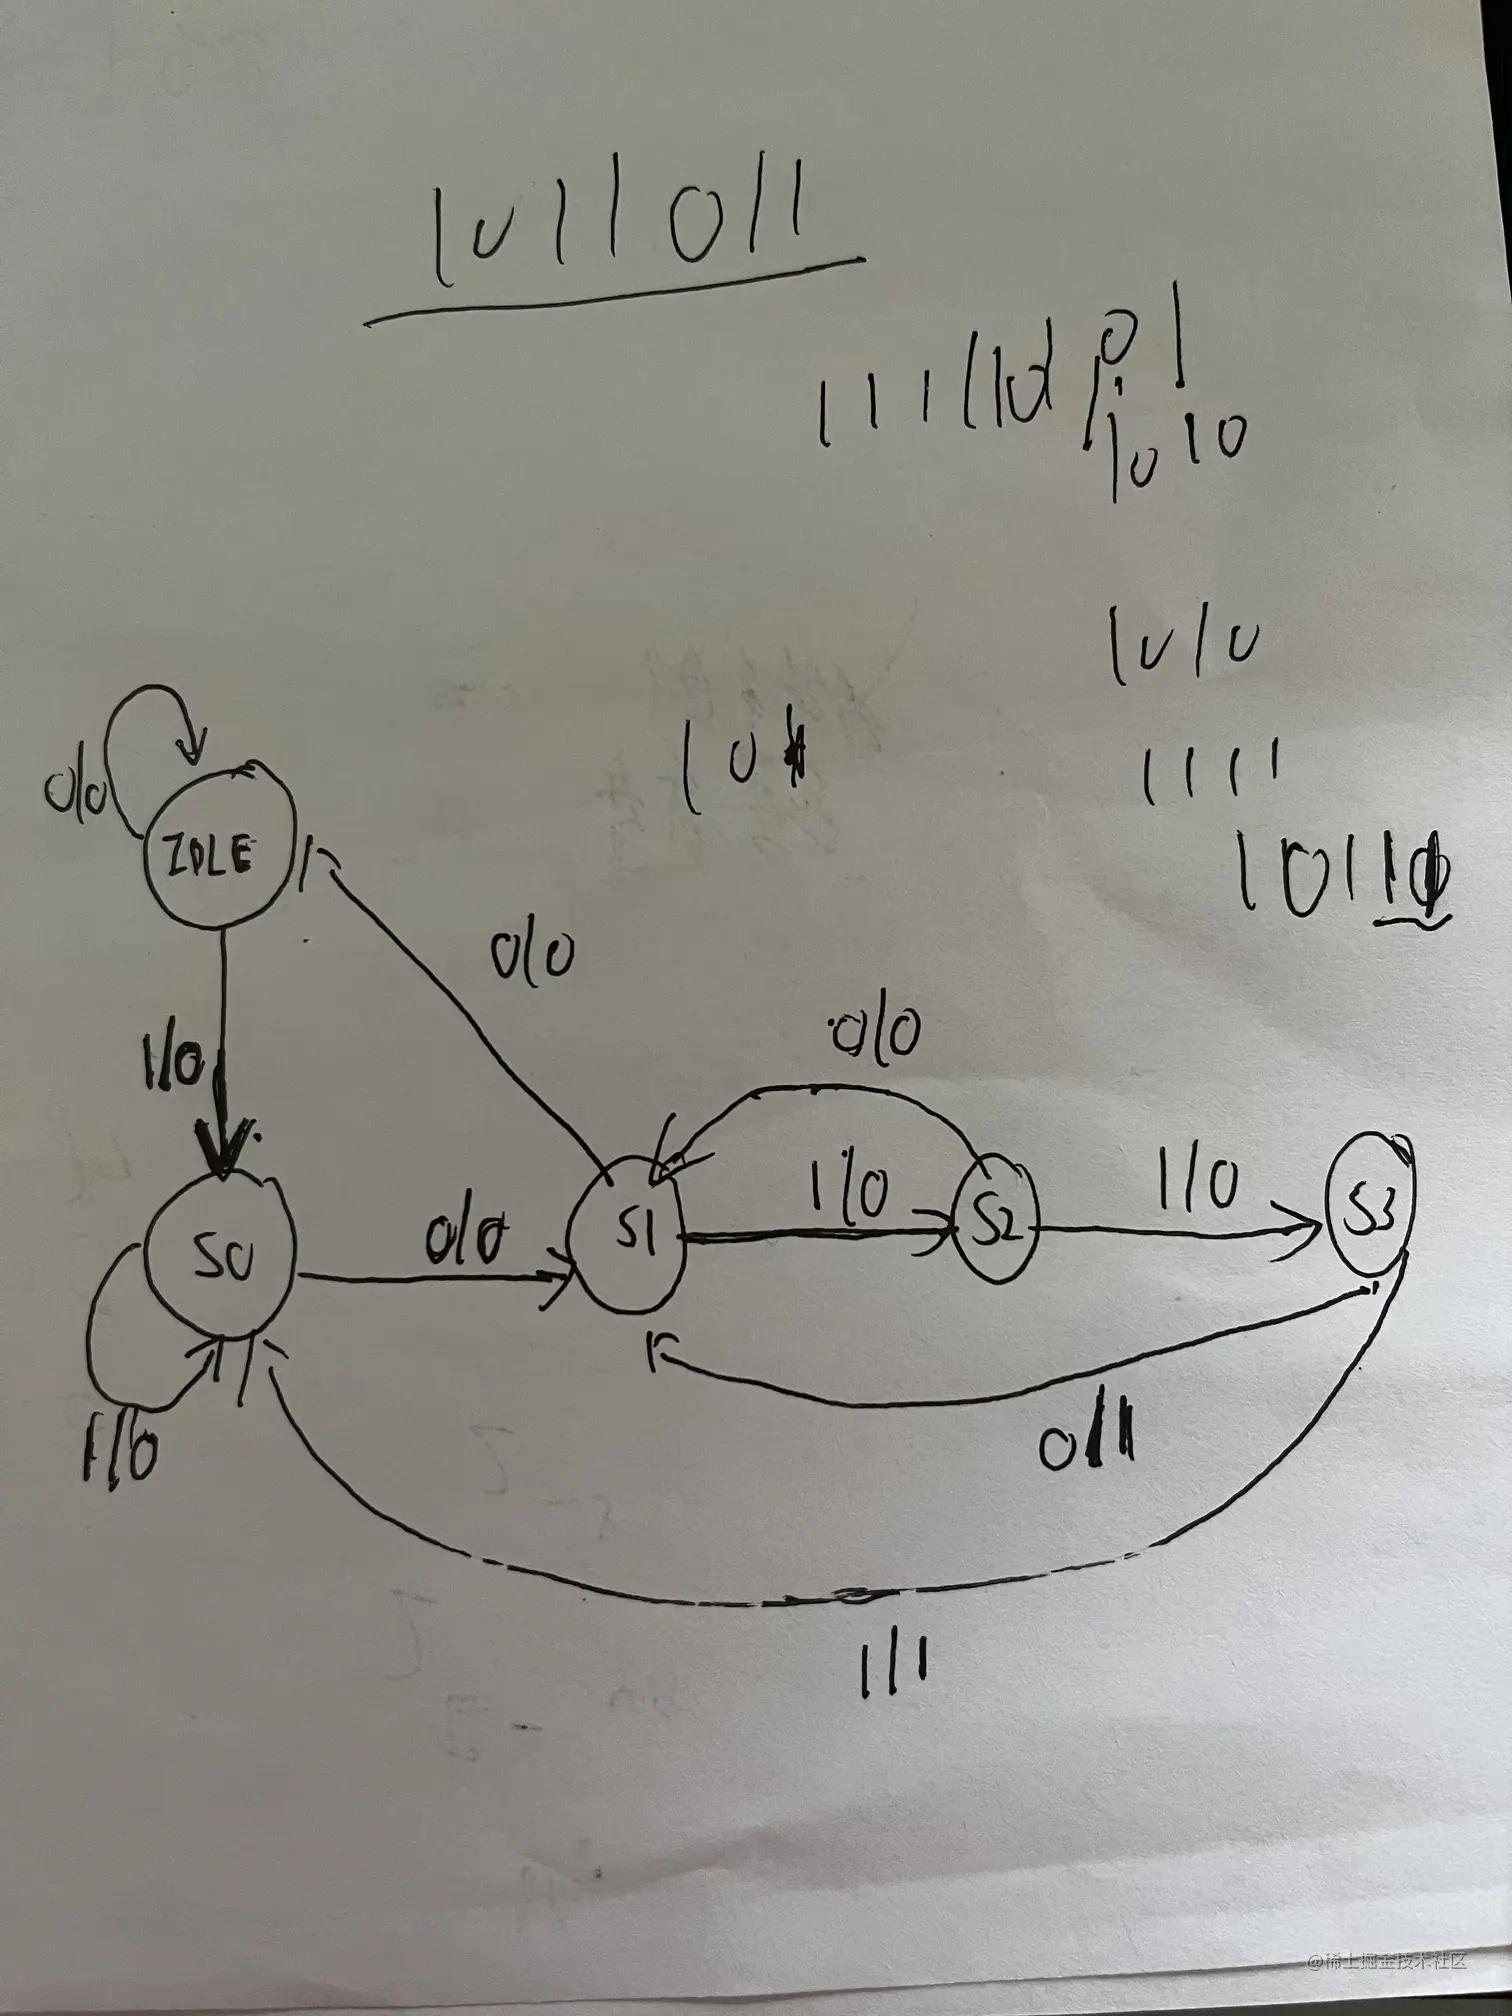 1011011
1010
1010
10
1111
1011
0/0
IDLE
0/0
0/0
1/0
1/0
1/0
S3
S1
S2
0/0
S0
0/1
1/0
1/1
@稀土掘金技术社区